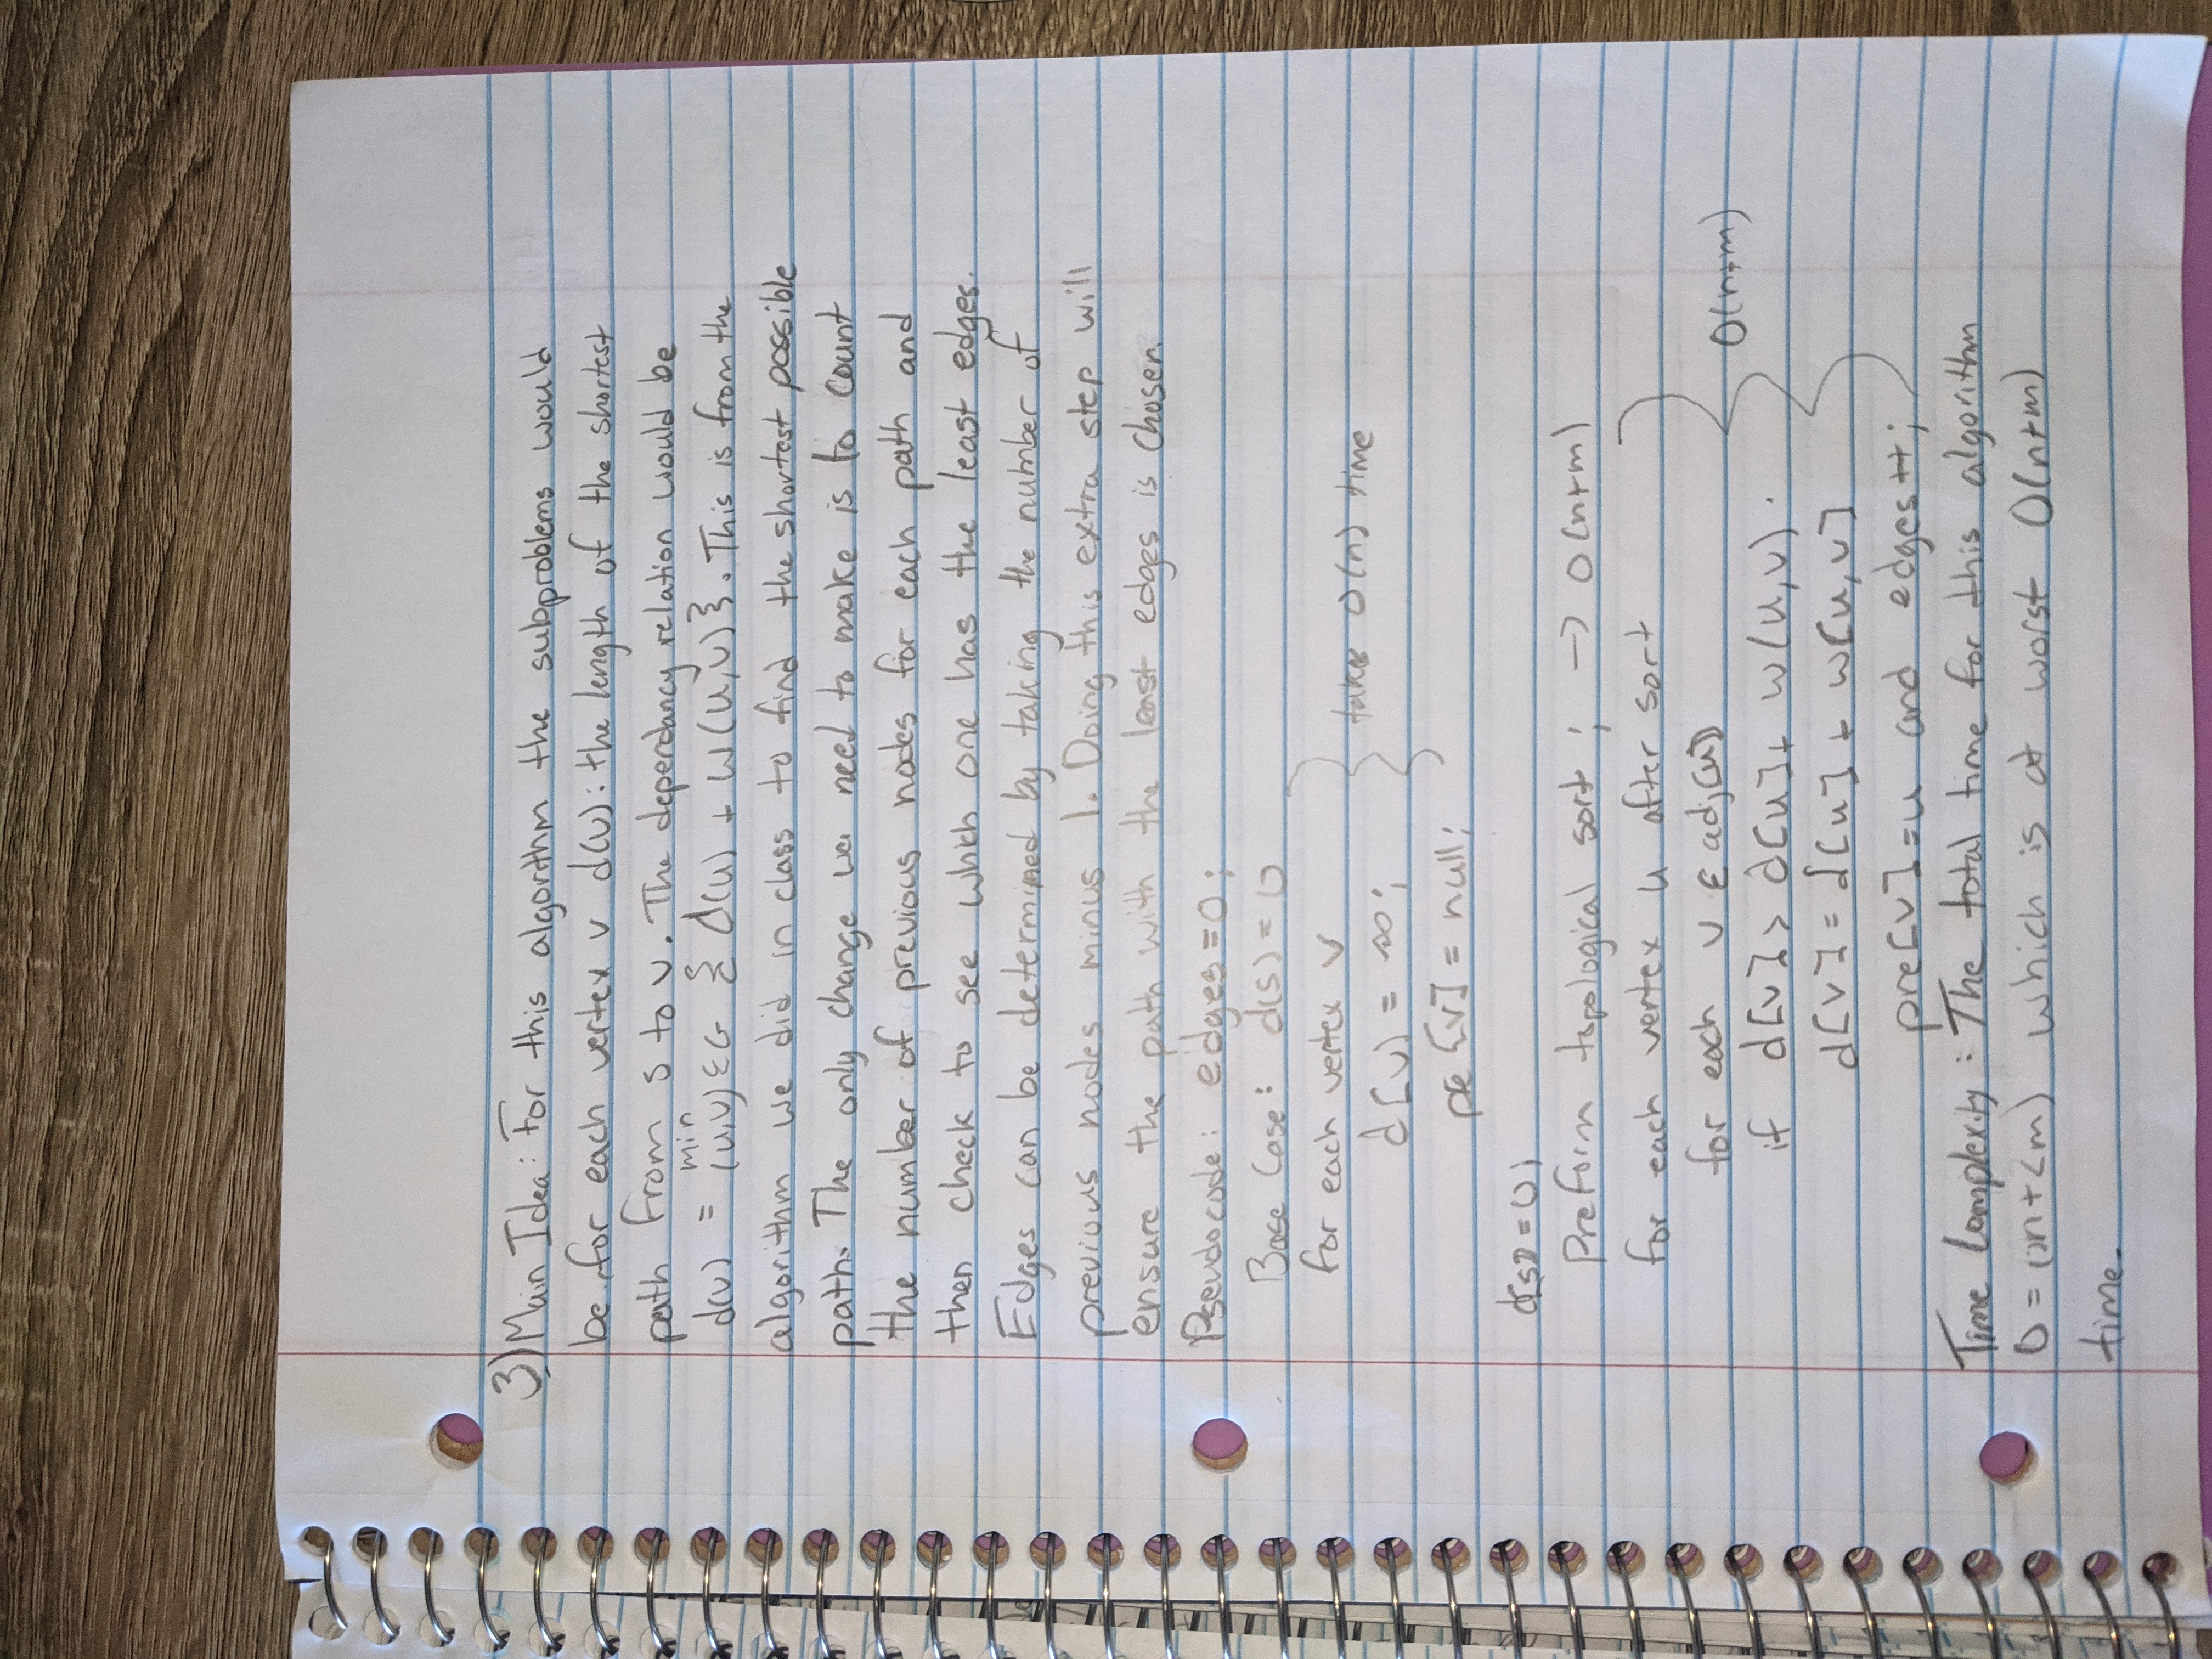 3) Main Idea: For this algorithm the subproblems would
be for each vertex v d(v): the length of the shortest
path from s to v. The dependancy relation would be
min
d(v) = (u,v)∈G { d(u) + w(u,v)}. This is from the
algorithm we did in class to find the shortest possible
path. The only change we need to make is to count
the number of previous nodes for each path and
then check to see which one has the least edges.
Edges can be determined by taking the number of
previous nodes minus 1. Doing this extra step will
ensure the path with the least edges is chosen.
Pseudocode: edges=0;
Base Case: d(s) = 0
for each vertex v
d[v) = ∞; takes O(n) time
pre[v] = null;
d[s] = 0;
Preform topological sort; -> O(n+m)
for each vertex u after sort
for each v ∈ adj[u]
if d[v] > d[u] + w(u,v). O(n+m)
d[v] = d[u] + w[u,v]
pre[v] = u and edges++;
Time Complexity: The total time for this algorithm
O = (2n+2m) which is at worst O(n+m)
time.